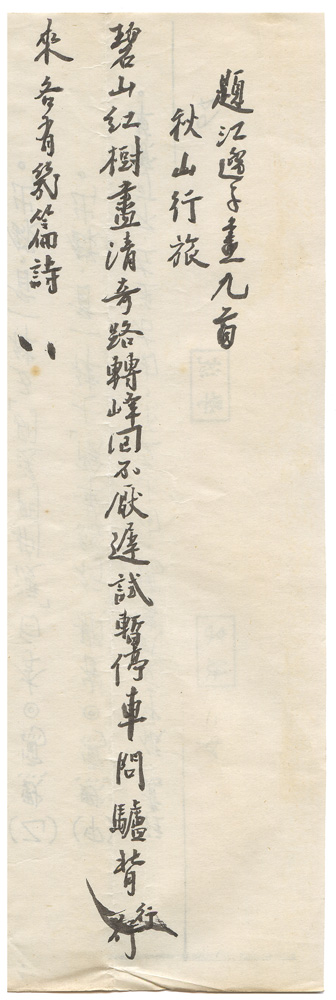 題江邊子畫九首
秋山行旅
碧山紅樹盡清奇路轉峰回不厭遲試暫停車問驢背行
來各有幾篇詩